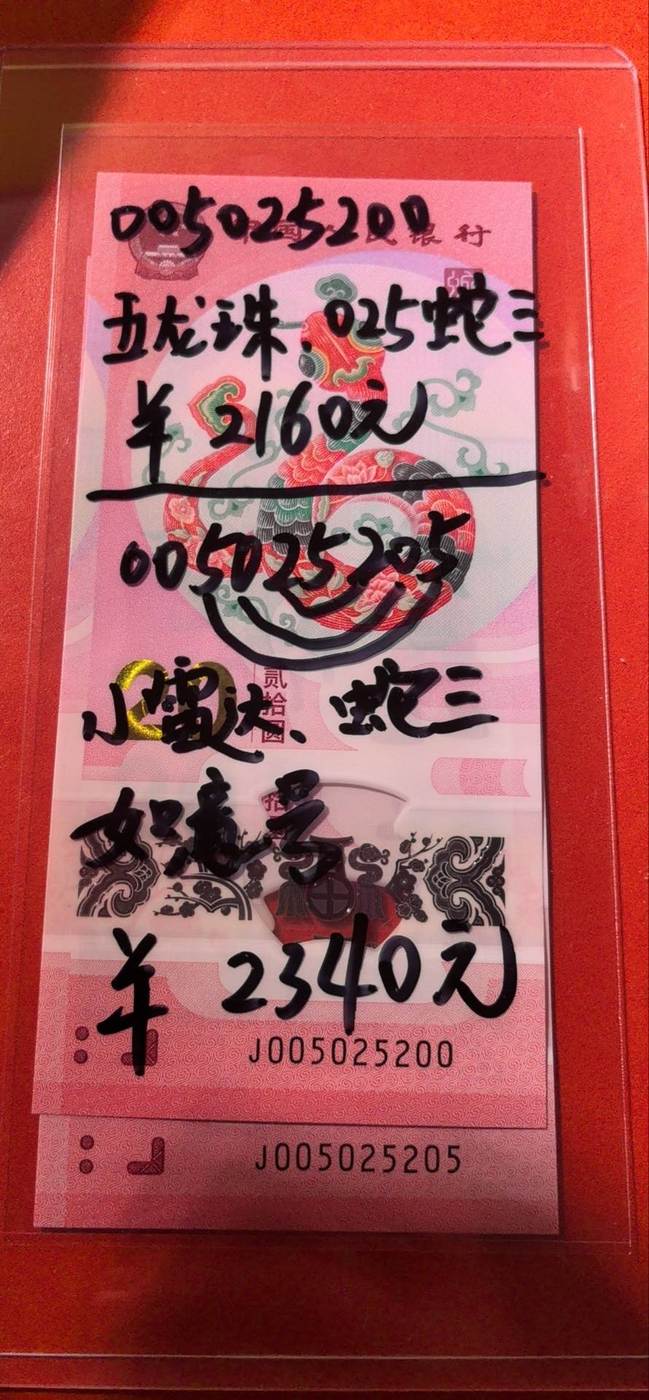 005025200
中国人民银行
五龙珠、025蛇三
¥2160元
005025205
20
贰拾圆
小雷达、蛇三
如意号
¥2340元
J005025200
J005025205